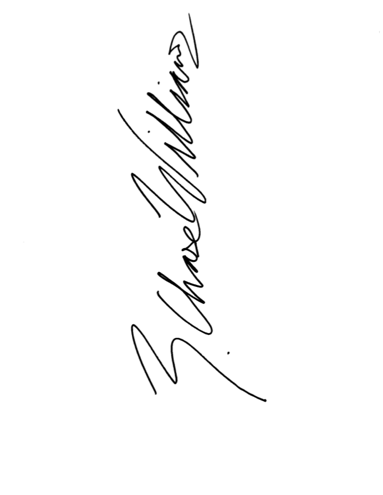 Z. Chase Williams